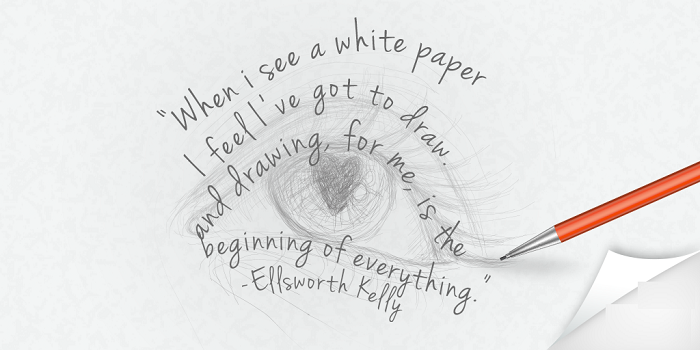 "When i see a white paper
I feel I've got to draw.
and drawing, for me, is the
beginning of everything."
-Ellsworth Kelly